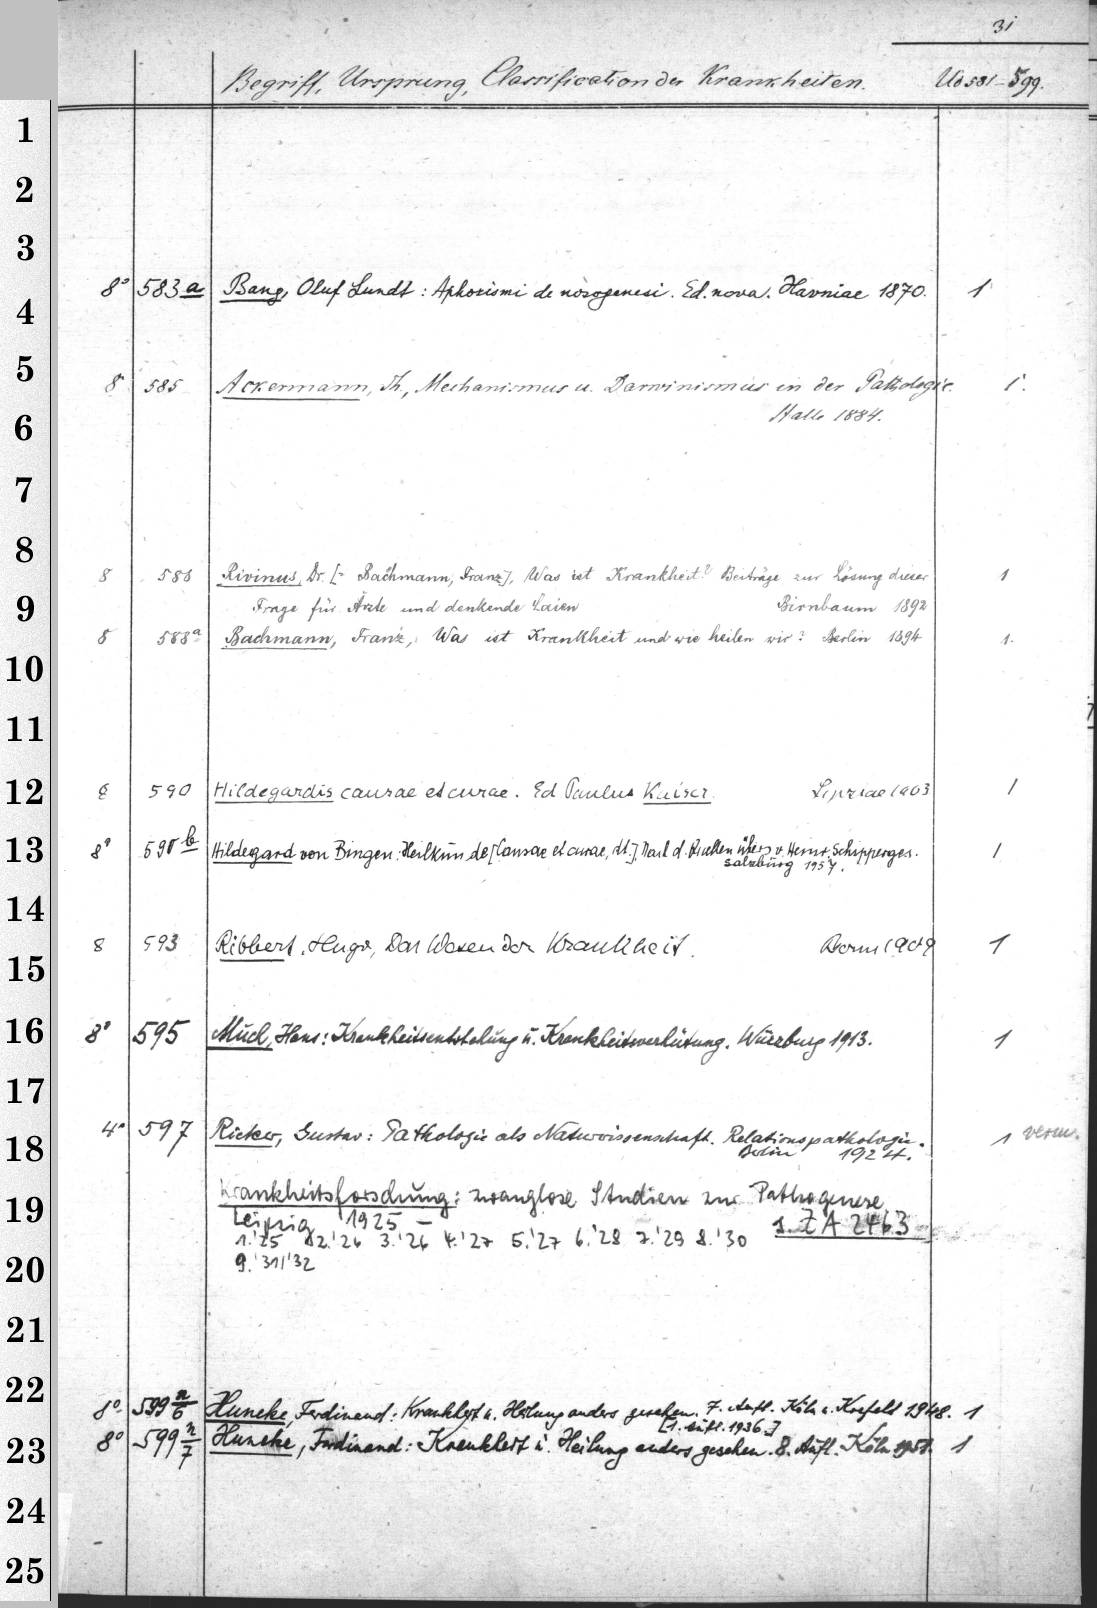 31
Begriff, Ursprung, Classification der Krankheiten. Ub 581–599.
1
2
3
8° 583a Bang, Oluf Lundt: Aphorismi de nosogenesi. Ed. nova. Havniae 1870. 1
4
5
8° 585 Ackermann, Th., Mechanismus u. Darwinismus in der Pathologie. 1.
Halle 1884.
6
7
8
8 588 Rivinus, Dr. [= Bachmann, Franz], Was ist Krankheit? Beiträge zur Lösung dieser 1
9
Frage für Ärzte und denkende Laien Birnbaum 1892
8 588a Bachmann, Franz, Was ist Krankheit und wie heilen wir? Berlin 1894 1.
10
11
12
8 590 Hildegardis causae et curae. Ed Paulus Kaiser. Lipziae 1903 1
13
8° 590b Hildegard von Bingen: Heilkunde [Causae et curae, dt.]. Nach d. Quellen übers. v. Heinr. Schipperges. 1
Salzburg 1957.
14
8 593 Ribbert, Hugo, Das Wesen der Krankheit. Bonn 1909 1
15
16
8° 595 Much, Hans: Krankheitsentstehung u. Krankheitsverhütung. Würzburg 1913. 1
17
4° 597 Ricker, Gustav: Pathologie als Naturwissenschaft. Relationspathologie. 1 verm.
18
Berlin 1924.
Krankheitsforschung: zwanglose Studien zur Pathogenese
19
Leipzig 1925 – s. ZA 2463
1.'25 2.'26 3.'26 4.'27 5.'27 6.'28 7.'29 8.'30
9.'31/'32
20
21
22
8° 599 n/6 Huneke, Ferdinand: Krankheit u. Heilung anders gesehen. 7. Aufl. Köln u. Krefeld 1948. 1
[1. Aufl. 1936.]
23
8° 599 n/7 Huneke, Ferdinand: Krankheit u. Heilung anders gesehen. 8. Aufl. Köln 1951. 1
24
25